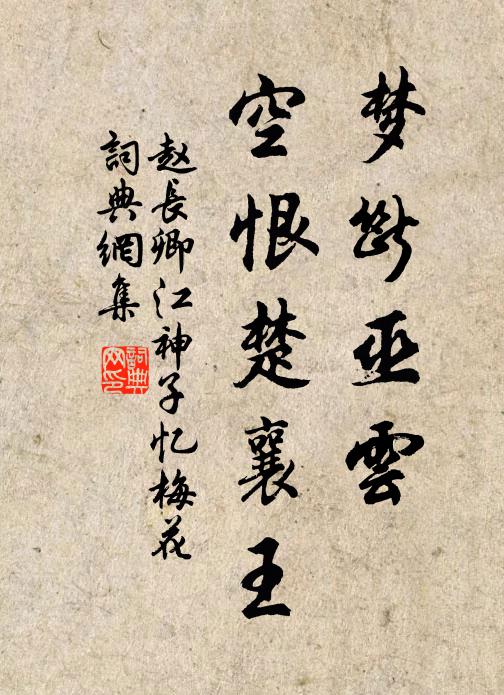 梦断巫雲
空恨楚襄王
赵長卿江神子忆梅花
詞典網集
詞典
网印